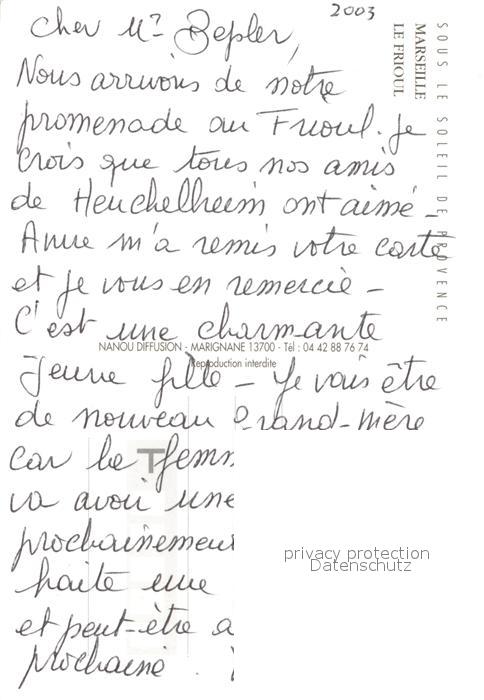 2003
Cher Mr Bepler,
Nous arrivons de notre
promenade au Frioul. Je
crois que tous nos amis
de Heuchelheim ont aimé -
Anne m'a remis votre carte
et je vous en remercie -
C'est une charmante
jeune fille - Je vais être
de nouveau grand-mère
car la femm
va avoir une
prochainement
haite une
et peut-être a
prochaine.
SOUS LE SOLEIL DE PROVENCE
MARSEILLE
LE FRIOUL
NANOU DIFFUSION - MARIGNANE 13700 - Tél : 04 42 88 76 74
Reproduction interdite
T
privacy protection
Datenschutz